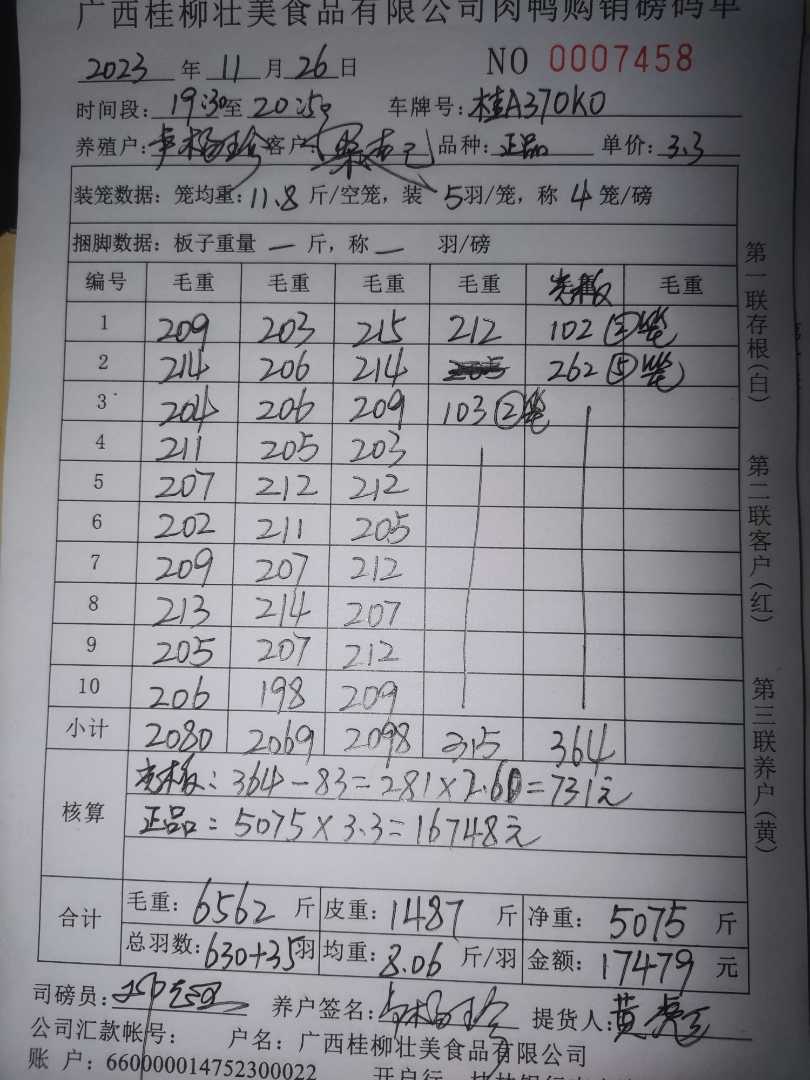 广西桂柳壮美食品有限公司肉鸭购销磅码单
2023 年 11 月 26 日 NO 0007458
时间段: 19:30 至 20:50 车牌号: 桂A370K0
养殖户: 客户: 品种: 正品 单价: 3.3
装笼数据: 笼均重: 11.8 斤/空笼, 装 5 羽/笼, 称 4 笼/磅
捆脚数据: 板子重量 — 斤, 称 — 羽/磅
编号 毛重 毛重 毛重 毛重 毛重
1 209 203 215 212 102 ② 笼
2 214 206 214 262 ⑤ 笼
3 204 206 209 103 ② 笼
4 211 205 203
5 207 212 212
6 202 211 205
7 209 207 212
8 213 214 207
9 205 207 212
10 206 198 209
小计 2080 2069 2098 315 364
核算
: 364-83=281×2.60=731元
正品: 5075×3.3=16748元
合计
毛重: 6562 斤 皮重: 1487 斤 净重: 5075 斤
总羽数: 630+35 羽 均重: 8.06 斤/羽 金额: 17479 元
司磅员: 养户签名: 提货人:
公司汇款帐号: 户名: 广西桂柳壮美食品有限公司
账 户: 660000014752300022 开户行
第一联存根(白)
第二联客户(红)
第三联养户(黄)